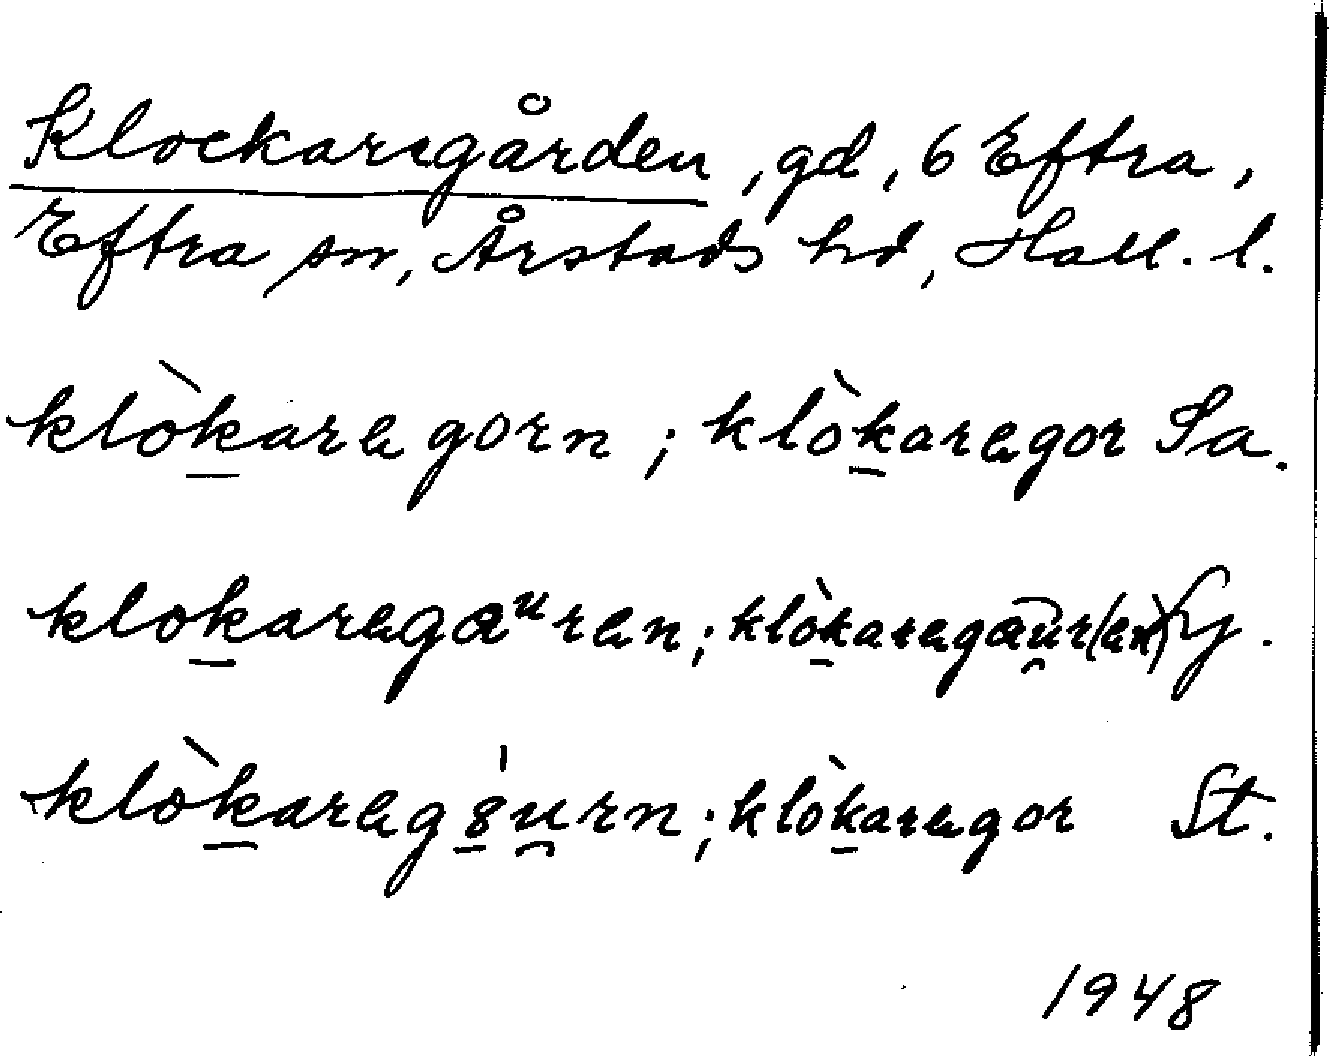 Klockaregården, gd, 6 Eftra,
Eftra sn, Årstads hd, Hall. l.
klòkaragorn; klòkaragor Sa.
klokaragaᵘran; klòkaragau̯r(an) Lj.
klòkaragȣu̯rn; klòkaragor St.
1948